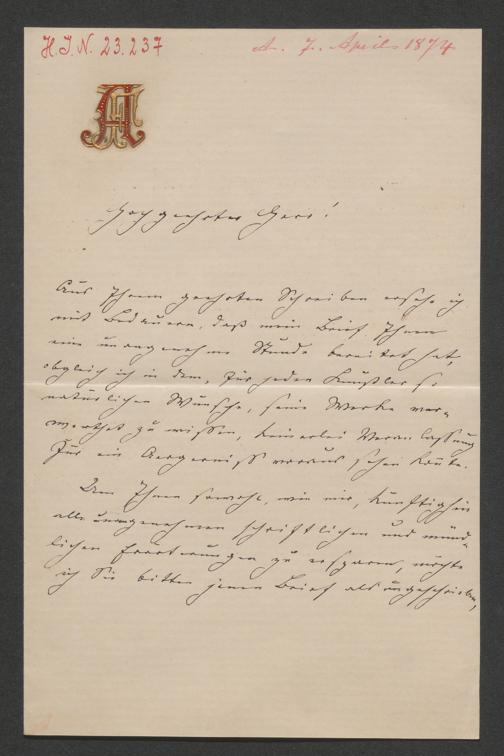 H.I.N. 23.237
A. 7. April 1874
Hochgeehrter Herr!
Aus Ihrem geehrten Schreiben ersehe ich
mit Bedauern, daß mein Brief Ihnen
eine unangenehme Stunde bereitet hat,
obgleich ich in dem, für jeden Künstler so
natürlichen Wunsche, seine Werke ver-
werthet zu wissen, keinerlei Veranlassung
für ein Aergerniß voraus sehen konte.
Um Ihnen sowohl, wie mir, künftighin
alle unangenehmen schriftlichen und münd-
lichen Eroerterungen zu ersparen, möchte
ich Sie bitten jenen Brief als ungeschrieben,